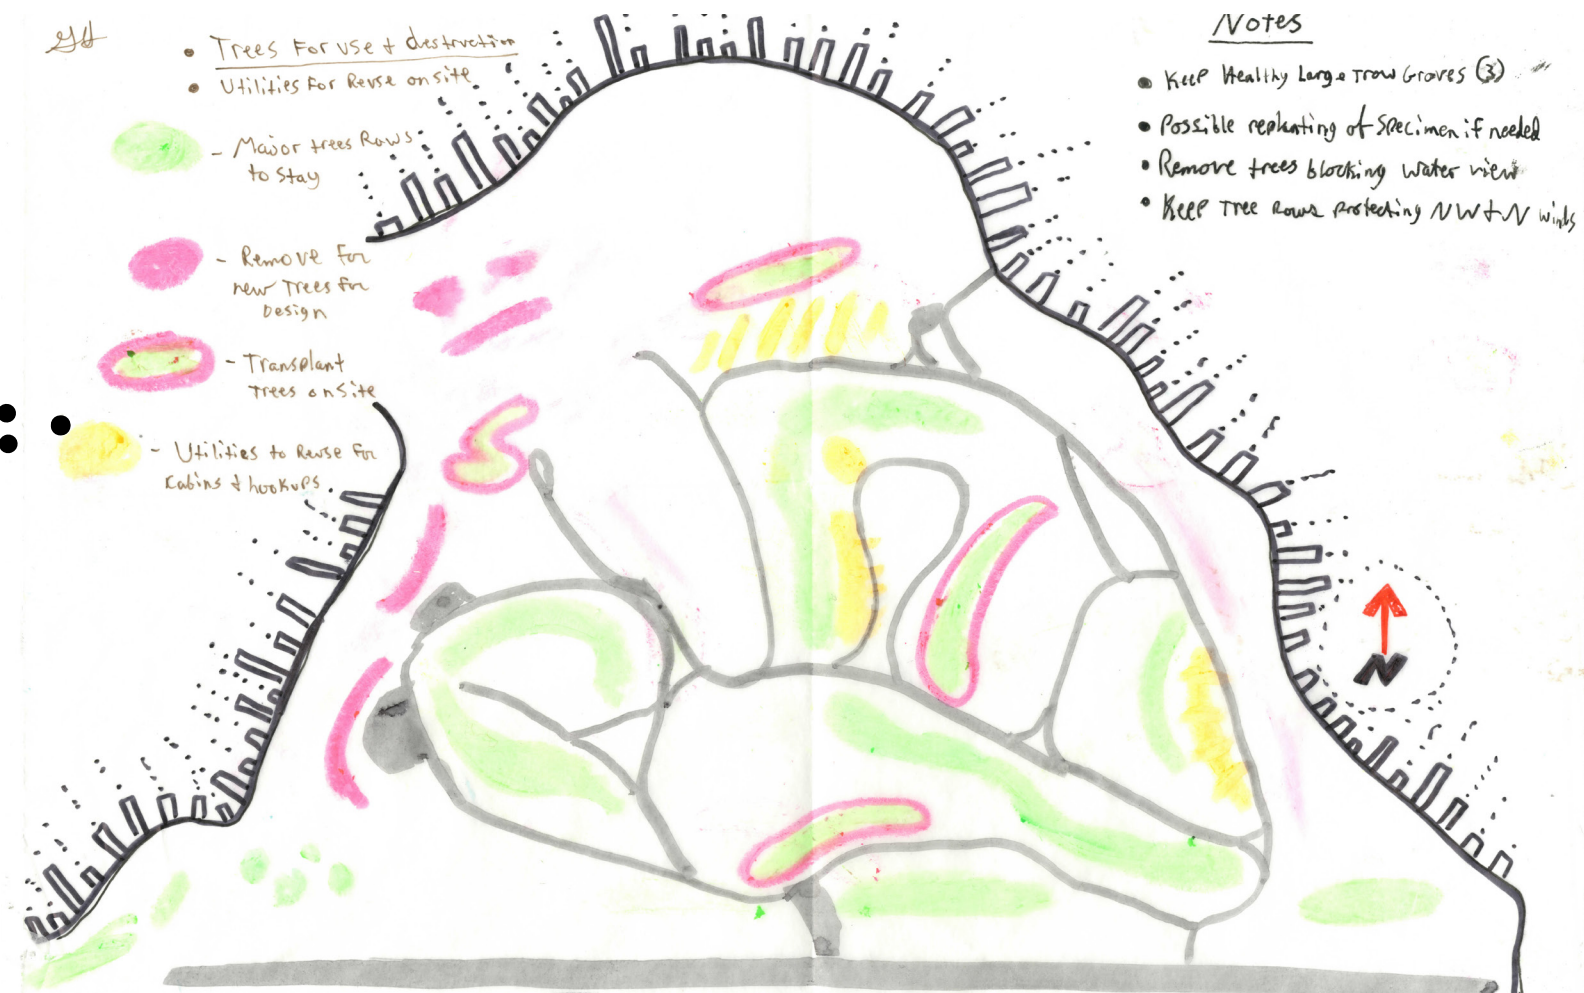 Trees For use & destruction
Utilities For Reuse on site
- Major trees Rows
to stay
- Remove for
new Trees for
Design
- Transplant
Trees on site
- Utilities to Reuse For
Cabins & hookups
Notes
Keep Healthy Large Trow Groves (3)
Possible replanting of Specimen if needed
Remove trees blocking water view
Keep Tree Rows protecting NW & N winds
N